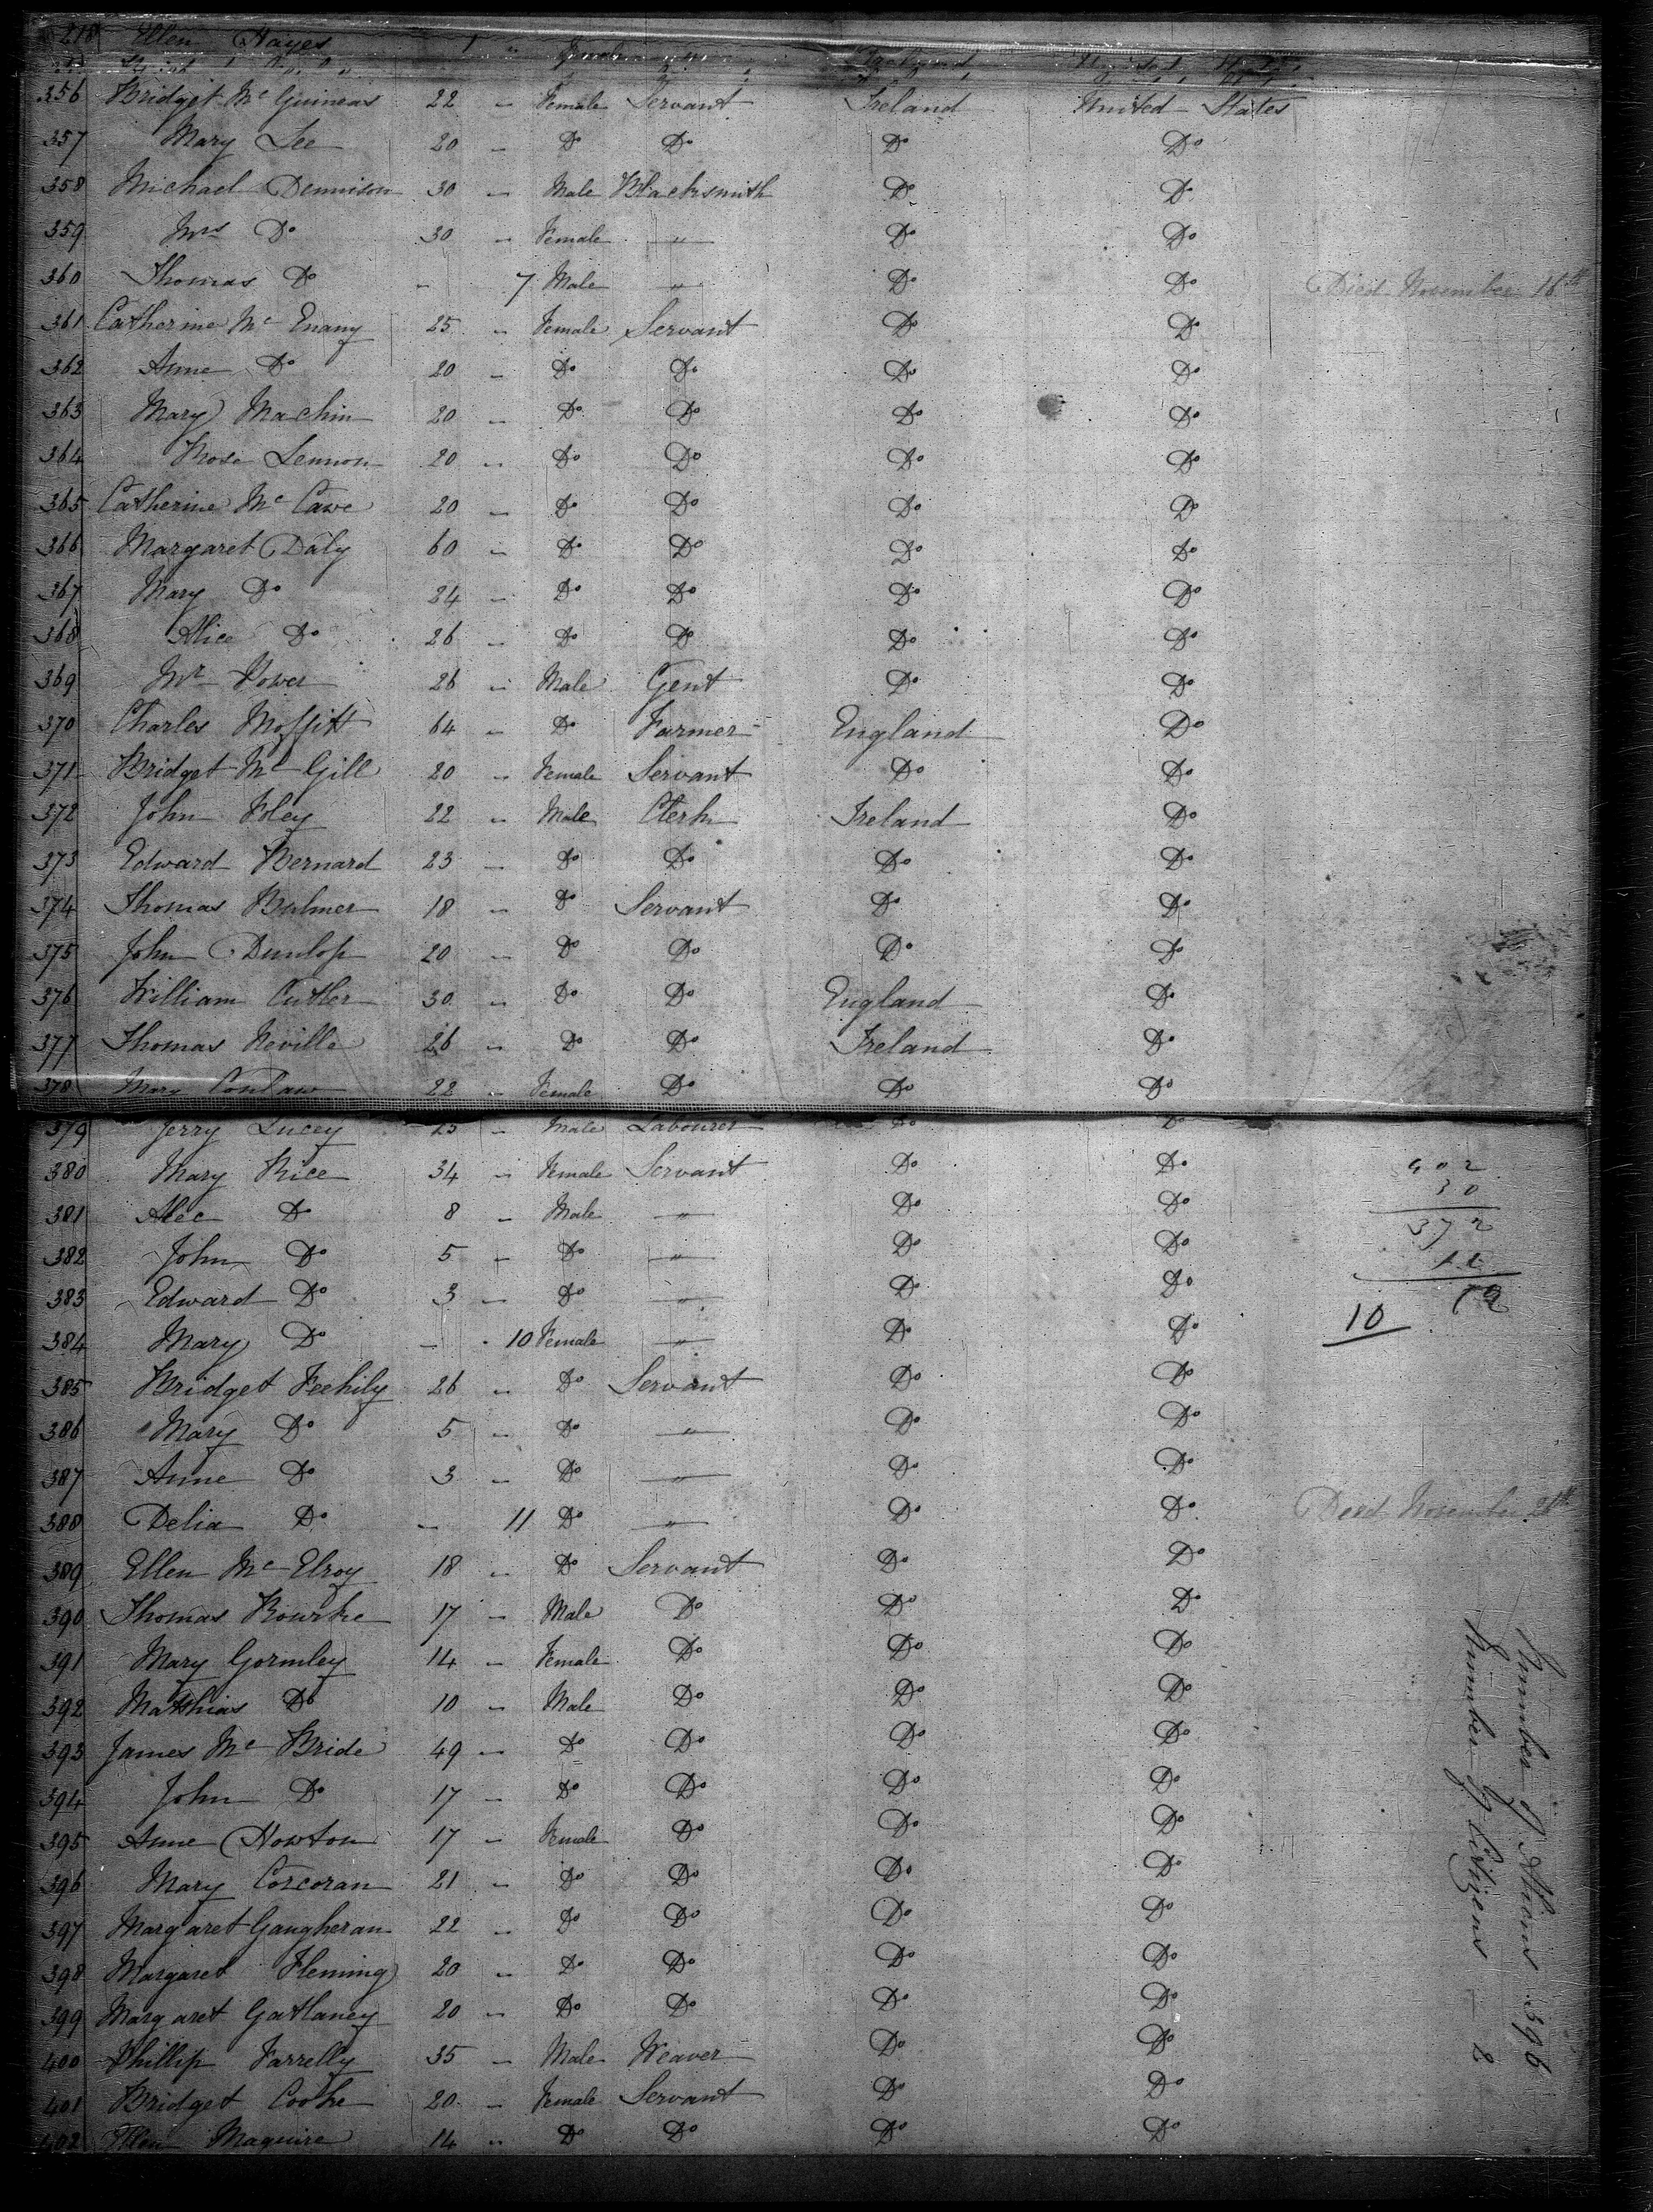 218 Ellen Hayes 1 " Female
356 Bridget Mc Guineas 22 " Female Servant Ireland United States
357 Mary Lee 20 " Do Do Do Do
358 Michael Dennison 30 " Male Blacksmith Do Do
359 Mrs Do 30 " Female " Do Do
360 Thomas Do " 7 Male " Do Do Died November 16th
361 Catherine Mc Enany 25 " Female Servant Do Do
362 Anne Do 20 " Do Do Do Do
363 Mary Machin 20 " Do Do Do Do
364 Rose Lennon 20 " Do Do Do Do
365 Catherine Mc Cawe 20 " Do Do Do Do
366 Margaret Daly 60 " Do Do Do Do
367 Mary Do 24 " Do Do Do Do
368 Alice Do 26 " Do Do Do Do
369 Mr Power 26 " Male Gent Do Do
370 Charles Moffitt 64 " Do Farmer England Do
371 Bridget Mc Gill 20 " Female Servant Do Do
372 John Foley 22 " Male Clerk Ireland Do
373 Edward Bernard 23 " Do Do Do Do
374 Thomas Bulmer 18 " Do Servant Do Do
375 John Dunlop 20 " Do Do Do Do
376 William Cutler 30 " Do Do England Do
377 Thomas Neville 26 " Do Do Ireland Do
378 Mary Conlaw 22 " Female Do Do Do
379 Jerry Lucey 25 " Male Labourer Do Do
380 Mary Rice 34 " Female Servant Do Do 402
30
381 Alec Do 8 " Male " Do Do 372
382 John Do 5 " Do " Do Do
383 Edward Do 3 " Do " Do Do
384 Mary Do " 10 Female " Do Do 10
385 Bridget Feehily 26 " Do Servant Do Do
386 Mary Do 5 " Do " Do Do
387 Anne Do 3 " Do " Do Do
388 Delia Do " 11 Do " Do Do Died November
389 Ellen Mc Elroy 18 " Do Servant Do Do
390 Thomas Bourke 17 " Male Do Do Do
391 Mary Gormley 14 " Female Do Do Do
392 Matthias Do 10 " Male Do Do Do
393 James Mc Bride 49 " Do Do Do Do
394 John Do 17 " Do Do Do Do
395 Anne Howton 17 " Female Do Do Do
396 Mary Corcoran 21 " Do Do Do Do
397 Margaret Gaugheran 22 " Do Do Do Do
398 Margaret Fleming 20 " Do Do Do Do
399 Margaret Gatlaney 20 " Do Do Do Do
400 Phillip Farrelly 35 " Male Weaver Do Do
401 Bridget Cooke 20 " Female Servant Do Do
402 Ellen Maguire 14 " Do Do Do Do
Number of Aliens 396
Number of Citizens — 2